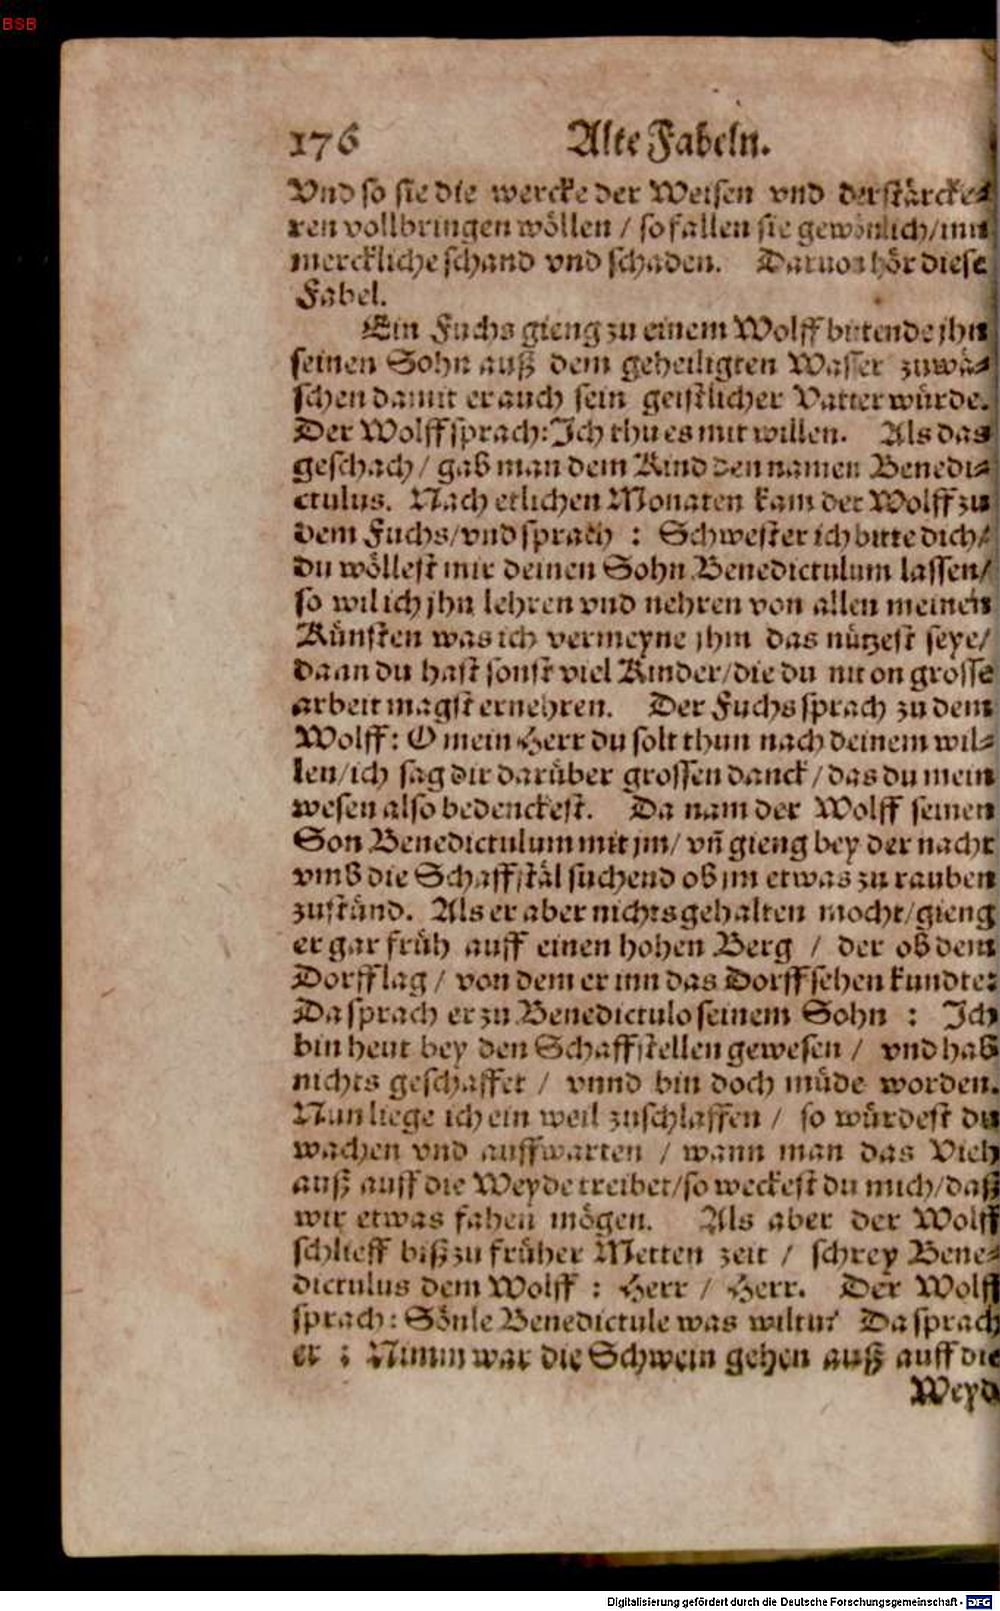 BSB
176 Alte Fabeln.
Vnd so sie die wercke der Weisen vnd der stårcke⸗
ren vollbringen wöllen / so fallen sie gewönlich / inn
merckliche schand vnd schaden. Daruon hör diese
Fabel.
Ein Fuchs gieng zu einem Wolff bittende jhn
seinen Sohn auß dem geheiligten Wasser zuwå⸗
schen damit er auch sein geistlicher Vatter würde.
Der Wolff sprach: Ich thu es mit willen. Als das
geschach / gab man dem Kind den namen Benedi⸗
ctulus. Nach etlichen Monaten kam der Wolff zu
dem Fuchs / vnd sprach : Schwester ich bitte dich /
du wöllest mir deinen Sohn Benedictulum lassen /
so wil ich jhn lehren vnd nehren von allen meinen
Künsten was ich vermeyne jhm das nützest seye /
dann du hast sonst viel Kinder / die du nit on grosse
arbeit magst ernehren. Der Fuchs sprach zu dem
Wolff: O mein Herr du solt thun nach deinem wil⸗
len / ich sag dir darüber grossen danck / das du mein
wesen also bedenckest. Da nam der Wolff seinen
Son Benedictulum mit jm / vñ gieng bey der nacht
vmb die Schaffstål suchend ob jm etwas zu rauben
zustünd. Als er aber nichts gehalten mocht / gieng
er gar früh auff einen hohen Berg / der ob dem
Dorff lag / von dem er inn das Dorff sehen kundte:
Da sprach er zu Benedictulo seinem Sohn : Ich
bin heut bey den Schaffstellen gewesen / vnd hab
nichts geschaffet / vnnd bin doch müde worden.
Nun liege ich ein weil zuschlaffen / so würdest du
wachen vnd auffwarten / wann man das Vieh
auß auff die Weyde treibet / so weckest du mich / daß
wir etwas fahen mögen. Als aber der Wolff
schlieff biß zu früher Metten zeit / schrey Bene⸗
dictulus dem Wolff : Herr / Herr. Der Wolff
sprach: Sönle Benedictule was wiltu? Da sprach
er : Nimm war die Schwein gehen auß auff die
Weyd
Digitalisierung gefördert durch die Deutsche Forschungsgemeinschaft - DFG